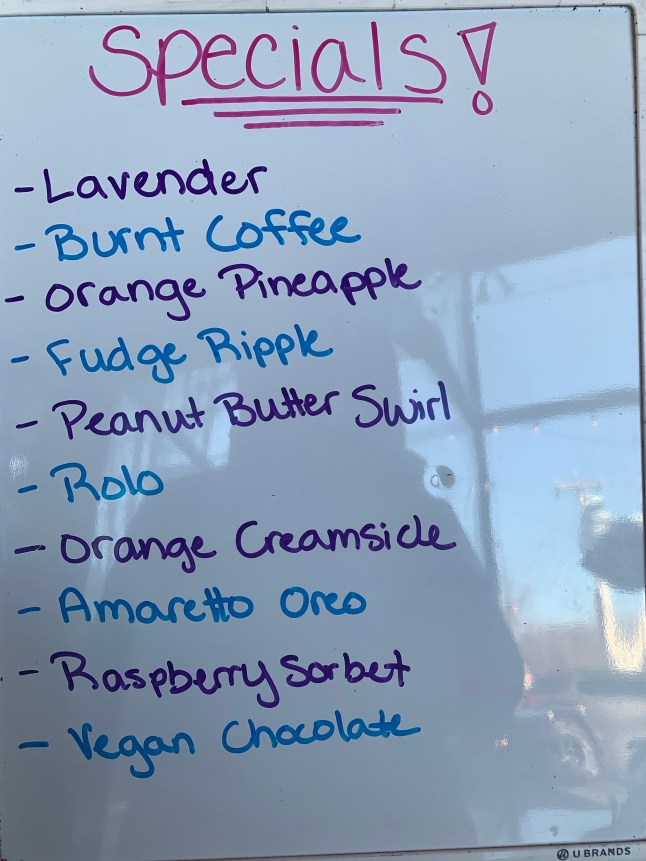 Specials!
- Lavender
- Burnt Coffee
- Orange Pineapple
- Fudge Ripple
- Peanut Butter Swirl
- Rolo
- Orange Creamsicle
- Amaretto Oreo
- Raspberry Sorbet
- Vegan Chocolate
U BRANDS